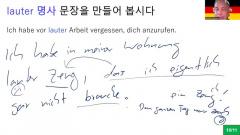 lauter 명사 문장을 만들어 봅시다
Ich habe vor lauter Arbeit vergessen, dich anzurufen.
Ich habe in meiner Wohnung
lauter Zeug, das ich eigentlich
gar nicht brauche. ein Zeug
Den ganzen Tag nur
10/11